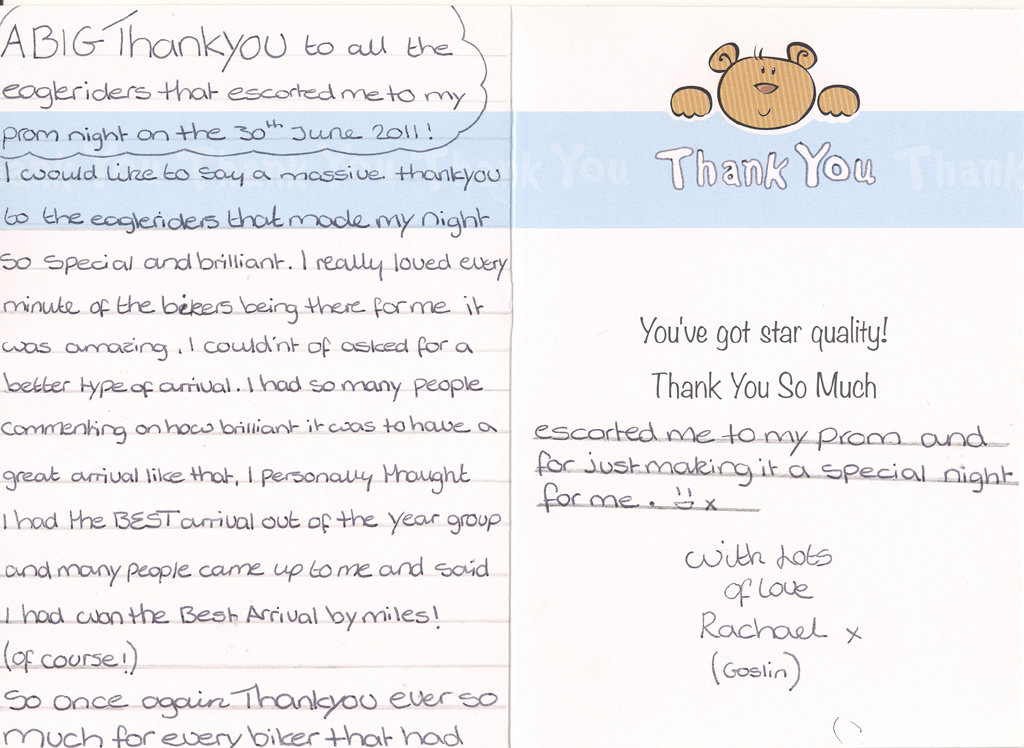 A BIG Thankyou to all the
eagleriders that escorted me to my
prom night on the 30th June 2011!
I would like to say a massive thankyou
to the eagleriders that made my night
so special and brilliant. I really loved every
minute of the bikers being there for me it
was amazing, I could'nt of asked for a
better type of arrival. I had so many people
commenting on how brilliant it was to have a
great arrival like that, I personally thought
I had the BEST arrival out of the year group
and many people came up to me and said
I had won the Best Arrival by miles!
(of course!)
So once again Thankyou ever so
much for every biker that had
Thank You
You've got star quality!
Thank You So Much
escorted me to my prom and
for just making it a special night
for me. x
with Lots
of love
Rachael x
(Goslin)